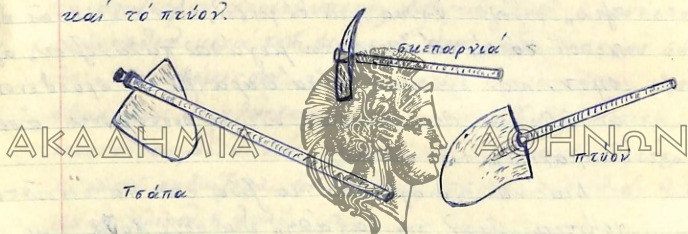 καί τό πτύον.
σκεπαρνιά
ΑΚΑΔΗΜΙΑ ΑΘΗΝΩΝ
πτύον
Τσάπα